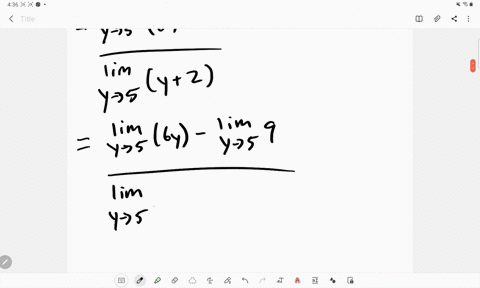 4:36
Title
y→5
lim (y+2)
y→5
= lim (6y) - lim 9
y→5 y→5
lim
y→5